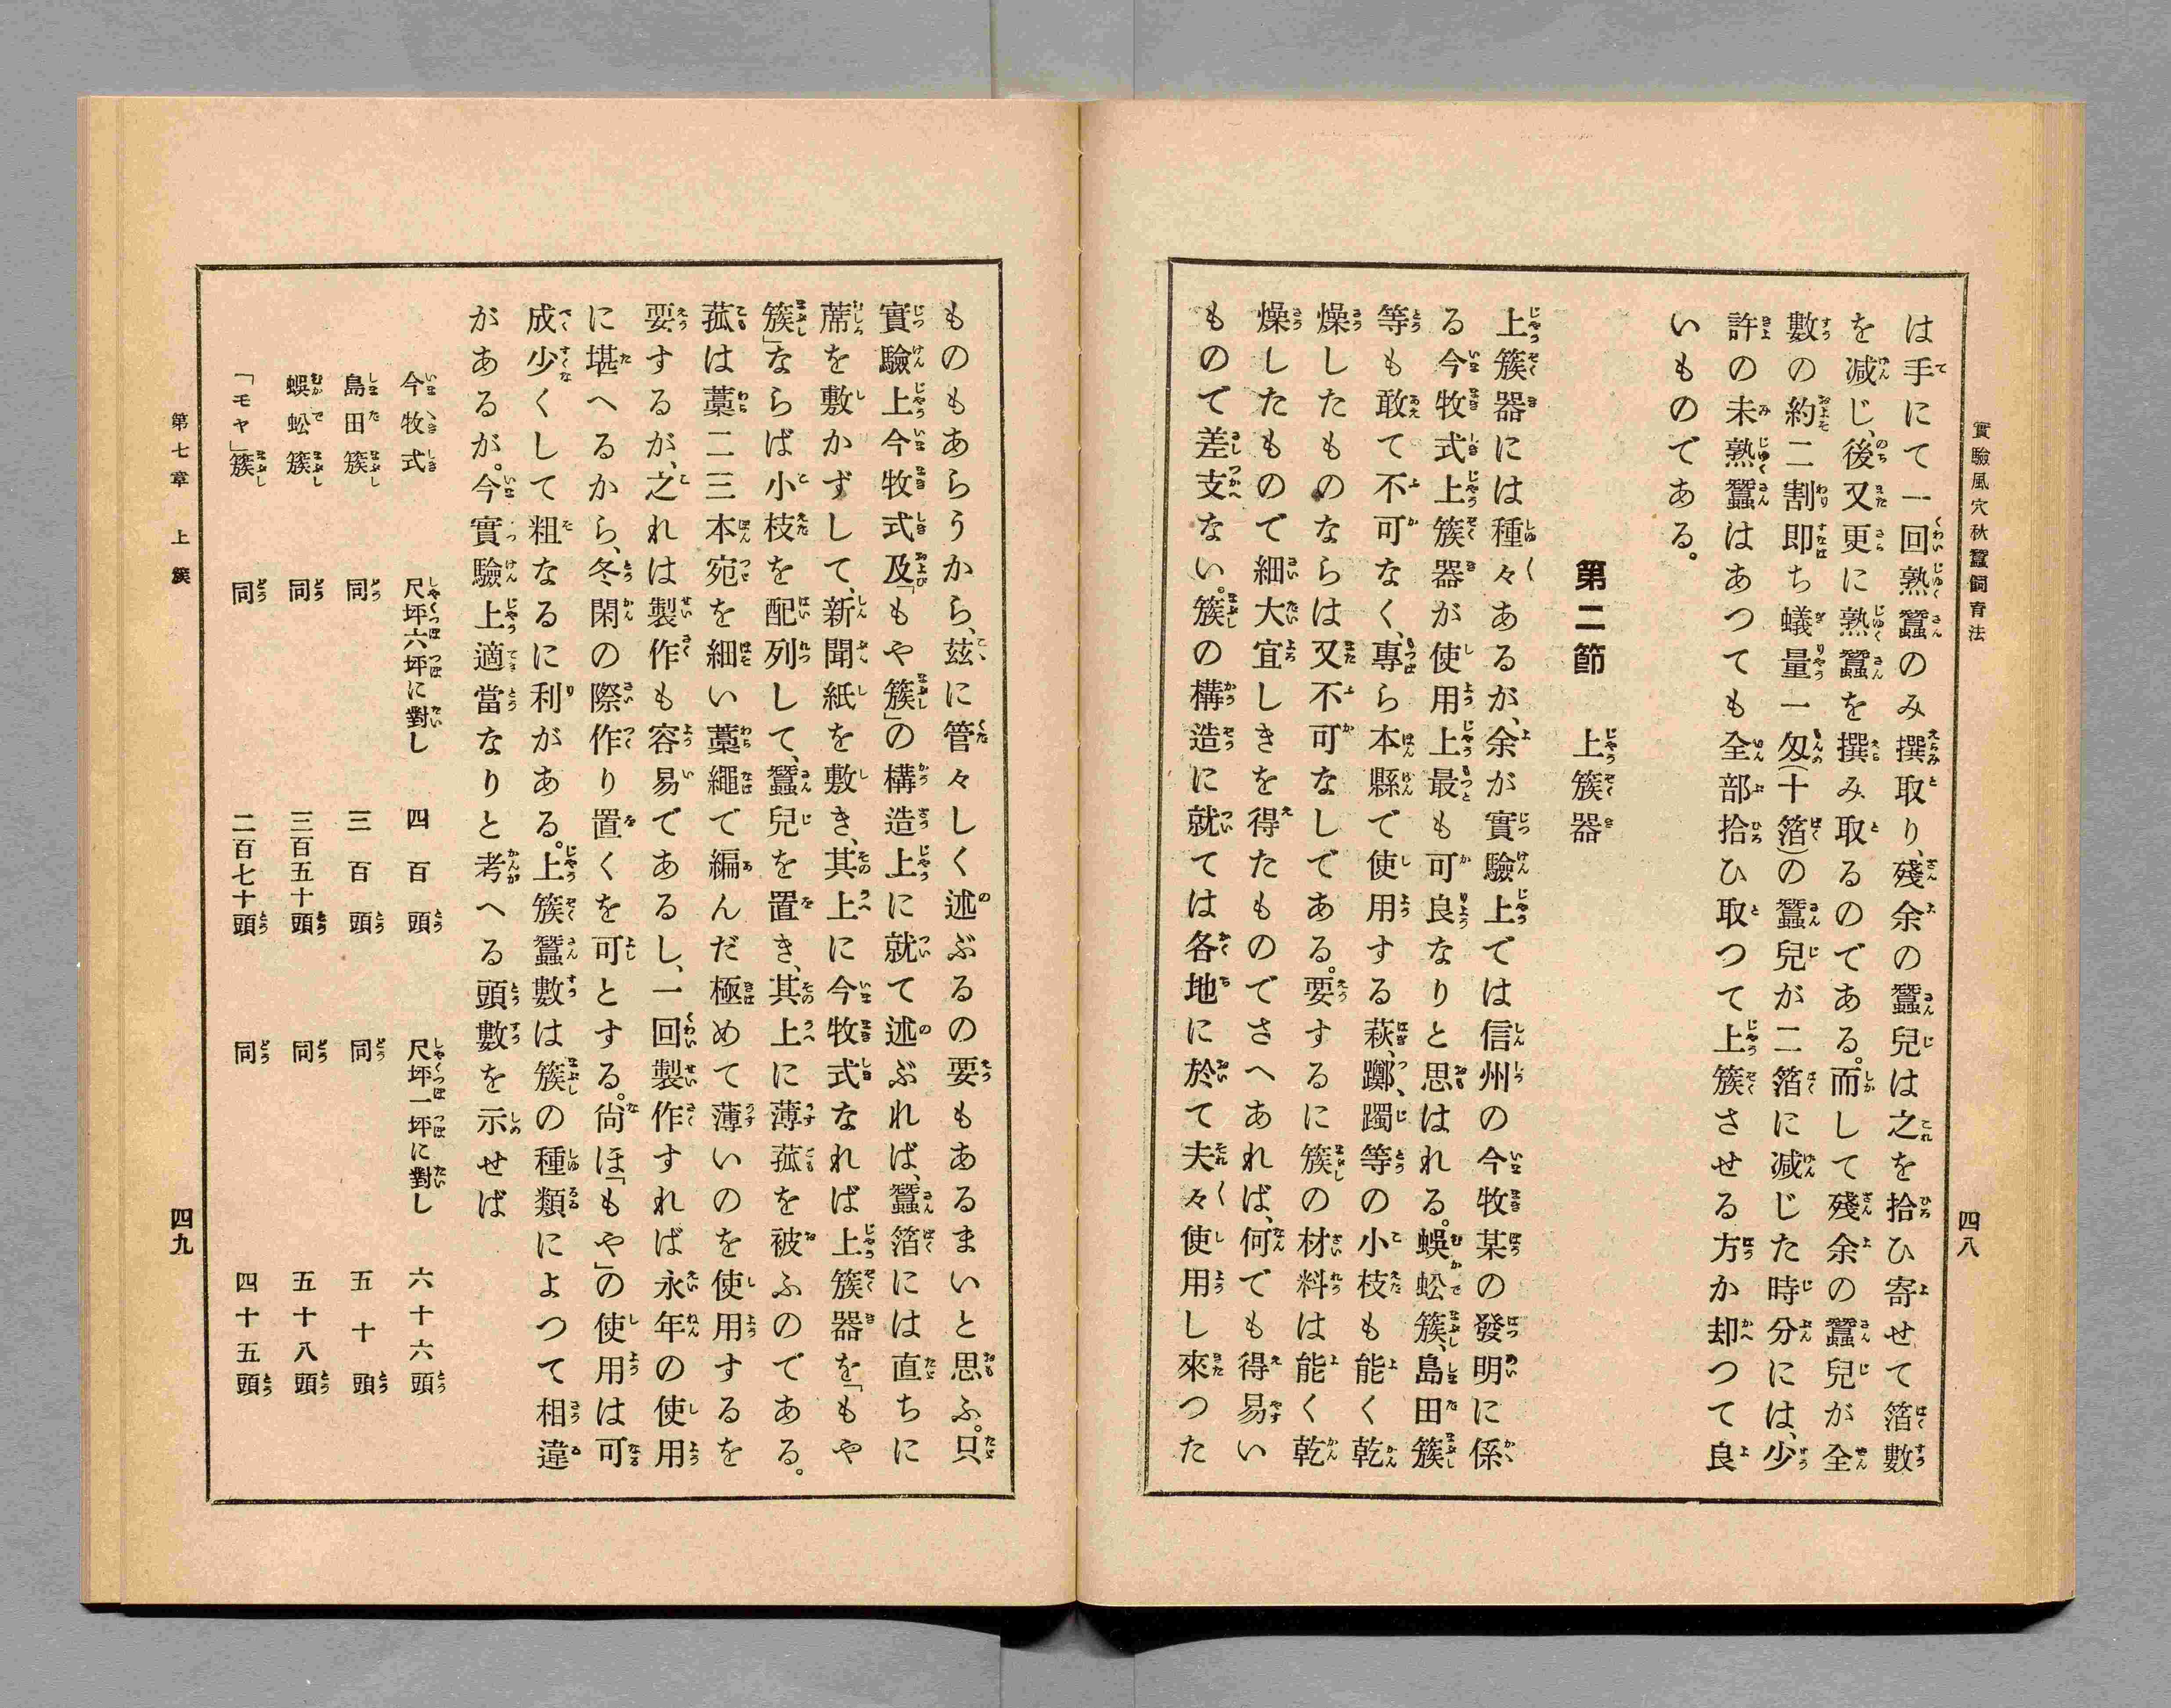 實驗風穴秋蠶飼育法
四八
は手にて一回熟蠶のみ撰取り、殘余の蠶兒は之を拾ひ寄せて箔數
を減じ、後又更に熟蠶を撰み取るのである。而して殘余の蠶兒が全
數の約二割即ち蟻量一匁(十箔)の蠶兒が二箔に減じた時分には、少
許の未熟蠶はあつても全部拾ひ取つて上簇させる方か却つて良
いものてある。
第二節 上簇器
上簇器には種々あるが、余が實驗上では信州の今牧某の發明に係
る今牧式上簇器が使用上最も可良なりと思はれる。蜈蚣簇、島田簇
等も敢て不可なく、專ら本縣で使用する萩、躑、躅等の小枝も能く乾
燥したものならは又不可なしである。要するに簇の材料は能く乾
燥したもので細大宜しきを得たものでさへあれば、何でも得易い
もので差支ない。簇の構造に就ては各地に於て夫々使用し來つた
ものもあらうから、玆に管々しく述ぶるの要もあるまいと思ふ。只
實驗上今牧式及「もや簇」の構造上に就て述ぶれば、蠶箔には直ちに
蓆を敷かずして、新聞紙を敷き、其上に今牧式なれば上簇器を「もや
簇」ならば小枝を配列して、蠶兒を置き、其上に薄菰を被ふのである。
菰は藁二三本宛を細い藁繩で編んだ極めて薄いのを使用するを
要するが、之れは製作も容易であるし、一回製作すれば永年の使用
に堪へるから、冬閑の際作り置くを可とする。尙ほ「もや」の使用は可
成少くして粗なるに利がある。上簇蠶數は簇の種類によつて相違
があるが。今實驗上適當なりと考へる頭數を示せば
今牧式 尺坪六坪に對し 四百頭 尺坪一坪に對し 六十六頭
島田簇 同 三百頭 同 五十頭
蜈蚣簇 同 三百五十頭 同 五十八頭
「モヤ」簇 同 二百七十頭 同 四十五頭
第七章 上簇
四九